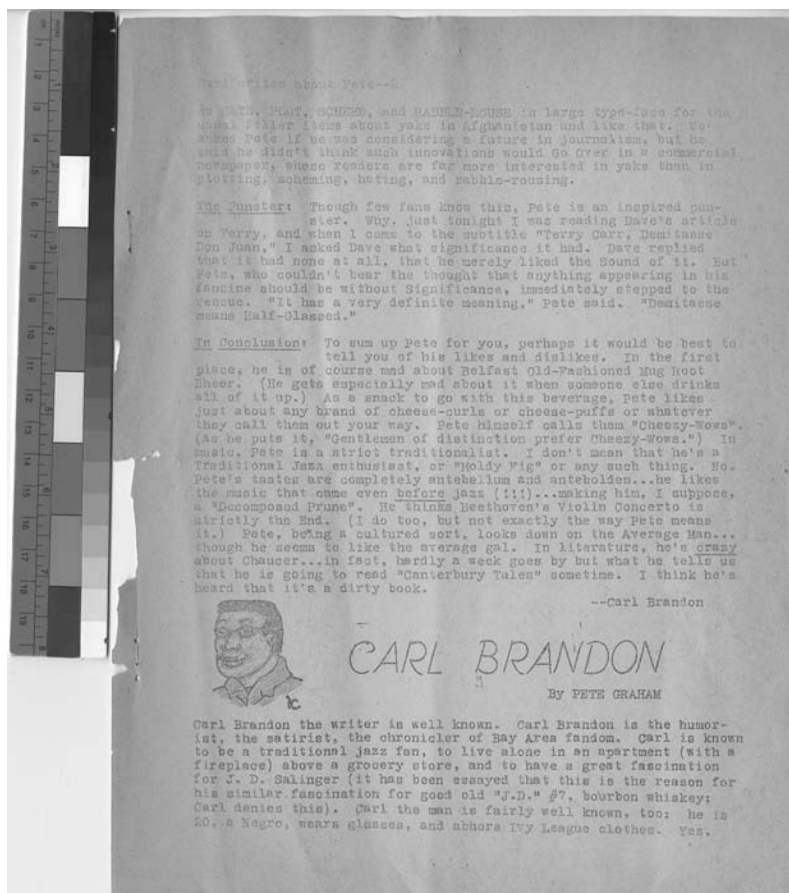 Carl writes about Pete--2
as HATE, PLOT, SCHEME, and RABBLE-ROUSE in large type-face for the
usual filler items about yaks in Afghanistan and like that. We
asked Pete if he was considering a future in journalism, but he
said he didn't think such innovations would Go Over in a commercial
newspaper, whose readers are far more interested in yaks than in
plotting, scheming, hating, and rabble-rousing.
The Punster: Though few fans know this, Pete is an inspired pun-
ster. Why, just tonight I was reading Dave's article
on Terry, and when I came to the subtitle "Terry Carr, Demitasse
Don Juan," I asked Dave what significance it had. Dave replied
that it had none at all, that he merely liked the Sound of it. But
Pete, who couldn't bear the thought that anything appearing in his
fanzine should be without Significance, immediately stepped to the
rescue. "It has a very definite meaning," Pete said. "Demitasse
means Half-Glassed."
In Conclusion: To sum up Pete for you, perhaps it would be best to
tell you of his likes and dislikes. In the first
place, he is of course mad about Belfast Old-Fashioned Mug Root
Bheer. (He gets especially mad about it when someone else drinks
all of it up.) As a snack to go with this beverage, Pete likes
just about any brand of cheese-curls or cheese-puffs or whatever
they call them out your way. Pete himself calls them "Cheezy-Wows".
(As he puts it, "Gentlemen of distinction prefer Cheezy-Wows.") In
music, Pete is a strict traditionalist. I don't mean that he's a
Traditional Jazz enthusiast, or "Moldy Fig" or any such thing. No.
Pete's tastes are completely antebellum and antebolden...he likes
the music that came even before jazz (!!!)...making him, I suppose,
a "Decomposed Prune". He thinks Beethoven's Violin Concerto is
strictly the End. (I do too, but not exactly the way Pete means
it.) Pete, being a cultured sort, looks down on the Average Man...
though he seems to like the average gal. In literature, he's crazy
about Chaucer...in fact, hardly a week goes by but what he tells us
that he is going to read "Canterbury Tales" sometime. I think he's
heard that it's a dirty book.
--Carl Brandon
CARL BRANDON
By PETE GRAHAM
Carl Brandon the writer is well known. Carl Brandon is the humor-
ist, the satirist, the chronicler of Bay Area fandom. Carl is known
to be a traditional jazz fan, to live alone in an apartment (with a
fireplace) above a grocery store, and to have a great fascination
for J. D. Salinger (it has been essayed that this is the reason for
his similar fascination for good old "J.D." #7, bourbon whiskey;
Carl denies this). Carl the man is fairly well known, too: he is
20, a Negro, wears glasses, and abhors Ivy League clothes. Yes.